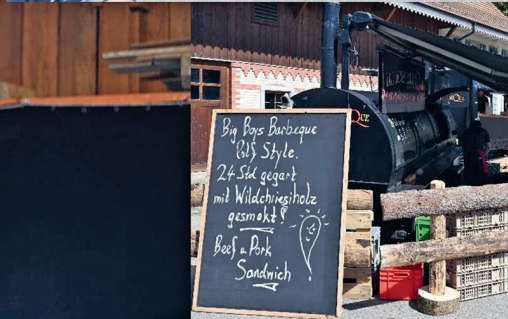 Big Boys Barbeque
Ralf Style.
24 Std gegart
mit Wildchriesiholz
gesmokt!
Beef u. Pork
Sandwich
QUE